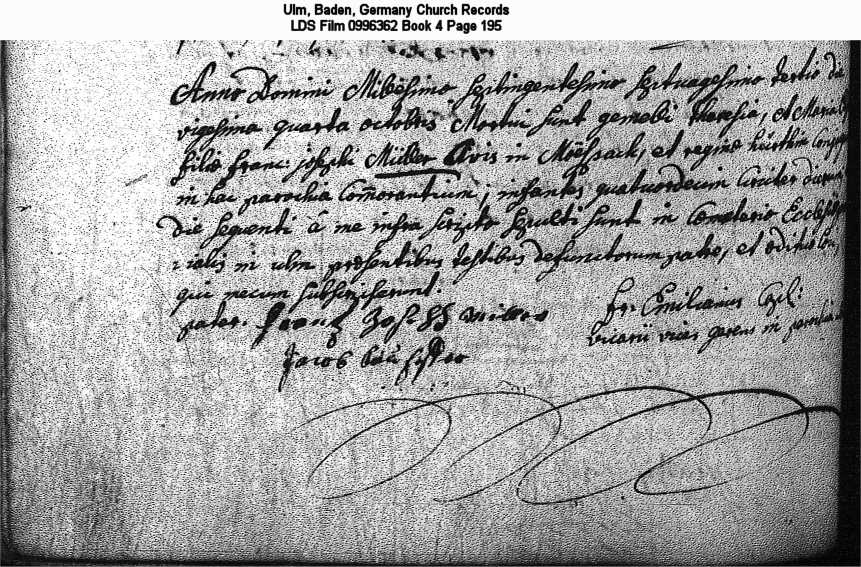 Ulm, Baden, Germany Church Records
LDS Film 0996362 Book 4 Page 195
Anno Domini Millesimo septingentesimo septuagesimo tertio die
vigesima quarta octobris Mortui sunt gemelli theresia, et Maria
filiæ franc: josephi Müller Civis in Mösbach, et reginæ hürthin Conjugum
in hac parochia Com̄orantium; infantes quatuordecim Circiter dierum,
die sequenti à me infra scripto sepulti sunt in Cœmeterio Ecclesiæ
in ulm præsentibus testibus defunctorum patre, et
qui mecum subscripserunt.
pater. Frantz Joseph Miller fr. Emilianus Cap:
Jacob vicarii vices gerens in parochia